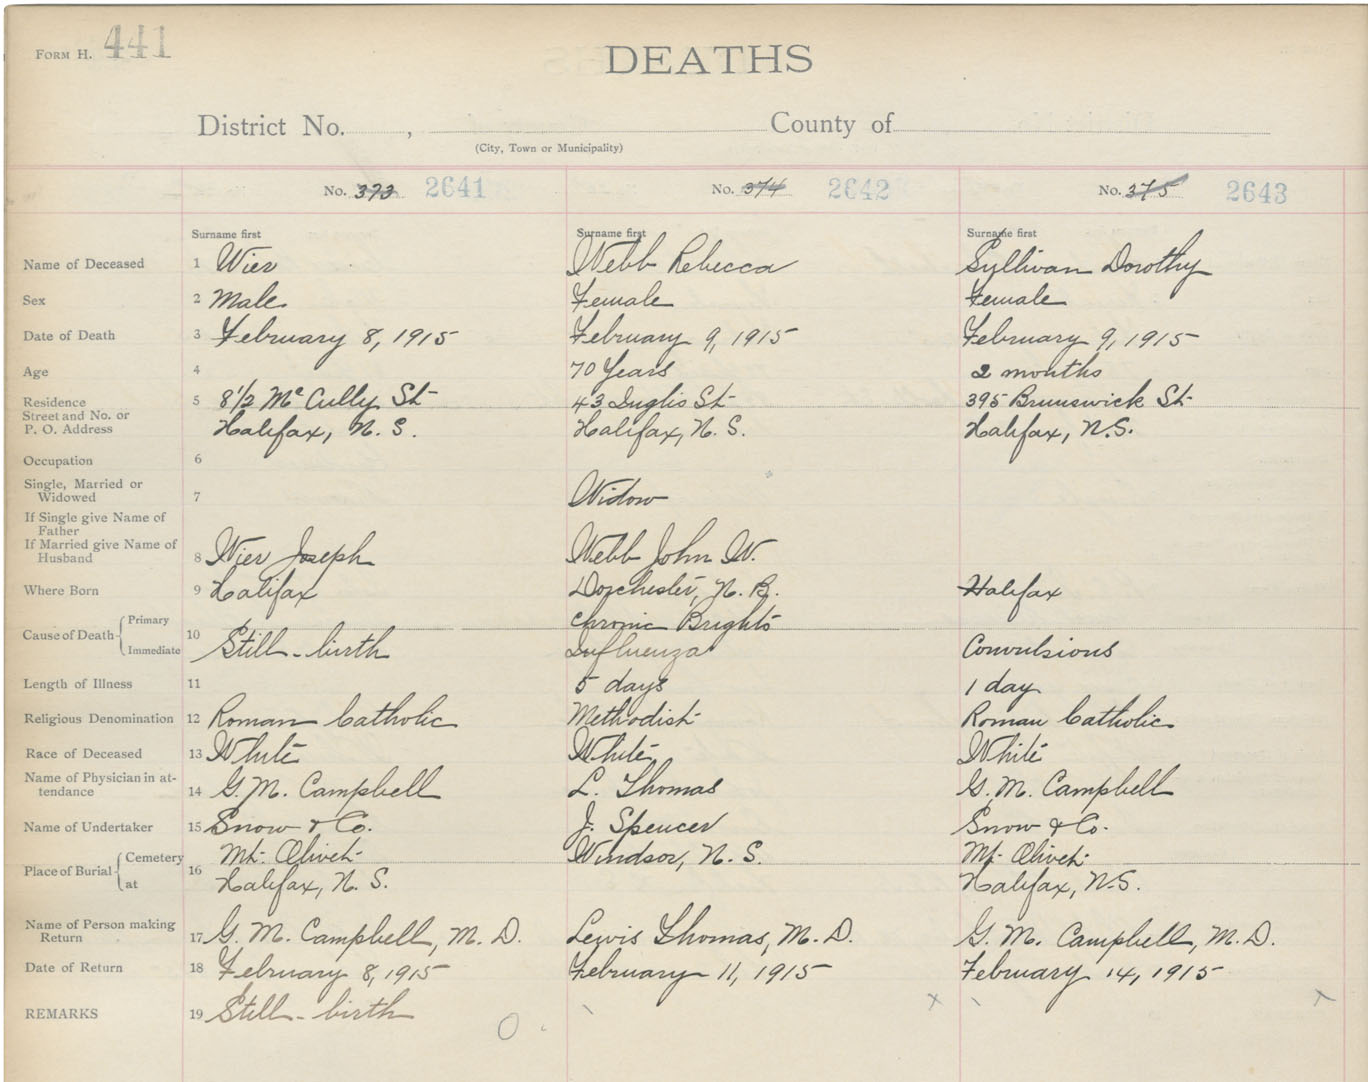 FORM H. 441
DEATHS
District No. , County of
(City, Town or Municipality)
No. 373 2641 No. 374 2642 No. 375 2643
Surname first Surname first Surname first
Name of Deceased 1 Wier Webb Rebecca Syllivan Dorothy
Sex 2 Male Female Female
Date of Death 3 February 8, 1915 February 9, 1915 February 9, 1915
Age 4 70 Years 2 months
Residence 5 8 1/2 Mc Cully St 43 Inglis St 395 Brunswick St
Street and No. or
P. O. Address Halifax, N. S. Halifax, N. S. Halifax, N.S.
Occupation 6
Single, Married or
Widowed 7 Widow
If Single give Name of
Father
If Married give Name of
Husband 8 Wier Joseph Webb John W.
Where Born 9 Halifax Dorchester, N. B. Halifax
Cause of Death Primary Chronic Brights
Immediate 10 Still-birth Influenza Convulsions
Length of Illness 11 5 days 1 day
Religious Denomination 12 Roman Catholic Methodist Roman Catholic
Race of Deceased 13 White White White
Name of Physician in at-
tendance 14 G. M. Campbell L. Thomas G. M. Campbell
Name of Undertaker 15 Snow & Co. J. Spencer Snow & Co.
Place of Burial Cemetery 16 Mt. Olivet Windsor, N. S. Mt. Olivet
at Halifax, N. S. Halifax, N.S.
Name of Person making
Return 17 G. M. Campbell, M. D. Lewis Thomas, M. D. G. M. Campbell, M. D.
Date of Return 18 February 8, 1915 February 11, 1915 February 14, 1915
REMARKS 19 Still-birth